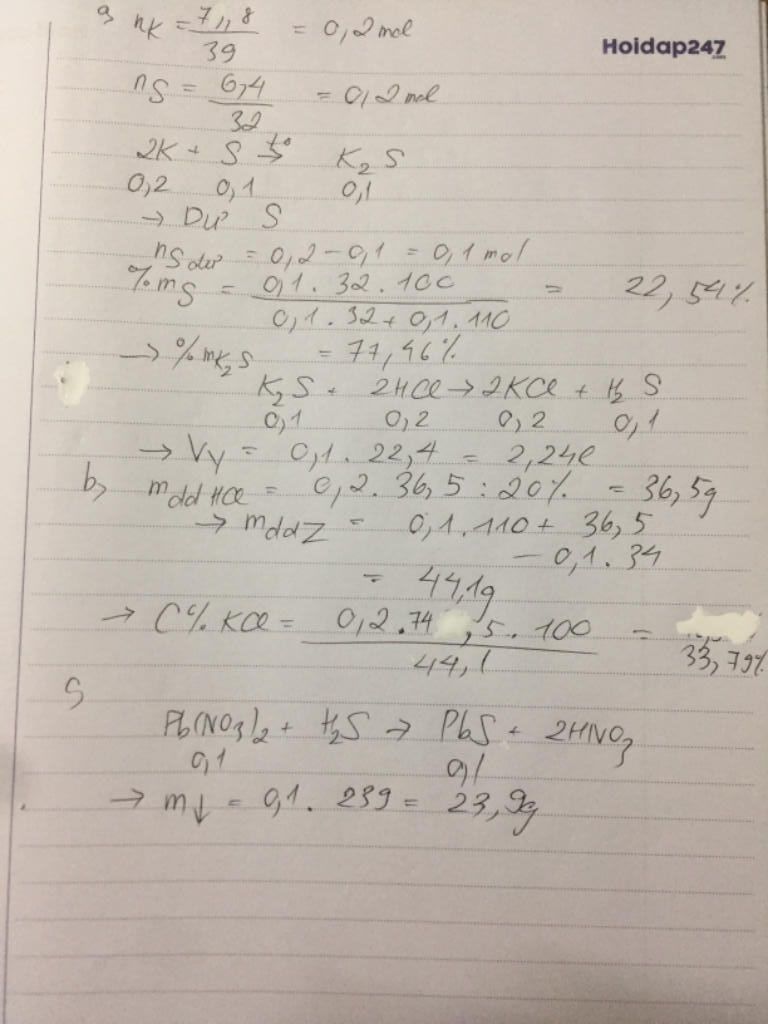 a, nK = 7,8 / 39 = 0,2 mol
Hoidap247
.com
nS = 6,4 / 32 = 0,2 mol
2K + S →t° K2S
0,2 0,1 0,1
→ Dư S
nS dư = 0,2 - 0,1 = 0,1 mol
%mS = 0,1 . 32 . 100 / 0,1 . 32 + 0,1 . 110 = 22,54%
→ %mK2S = 77,46%
K2S + 2HCl → 2KCl + H2S
0,1 0,2 0,2 0,1
→ Vy = 0,1 . 22,4 = 2,24l
b, mdd HCl = 0,2 . 36,5 : 20% = 36,5g
→ mddZ = 0,1 . 110 + 36,5
- 0,1 . 34
= 44,1g
→ C% KCl = 0,2 . 74,5 . 100 / 44,1 = 33,79%
Pb(NO3)2 + H2S → PbS + 2HNO3
0,1 0,1
→ m↓ = 0,1 . 239 = 23,9g